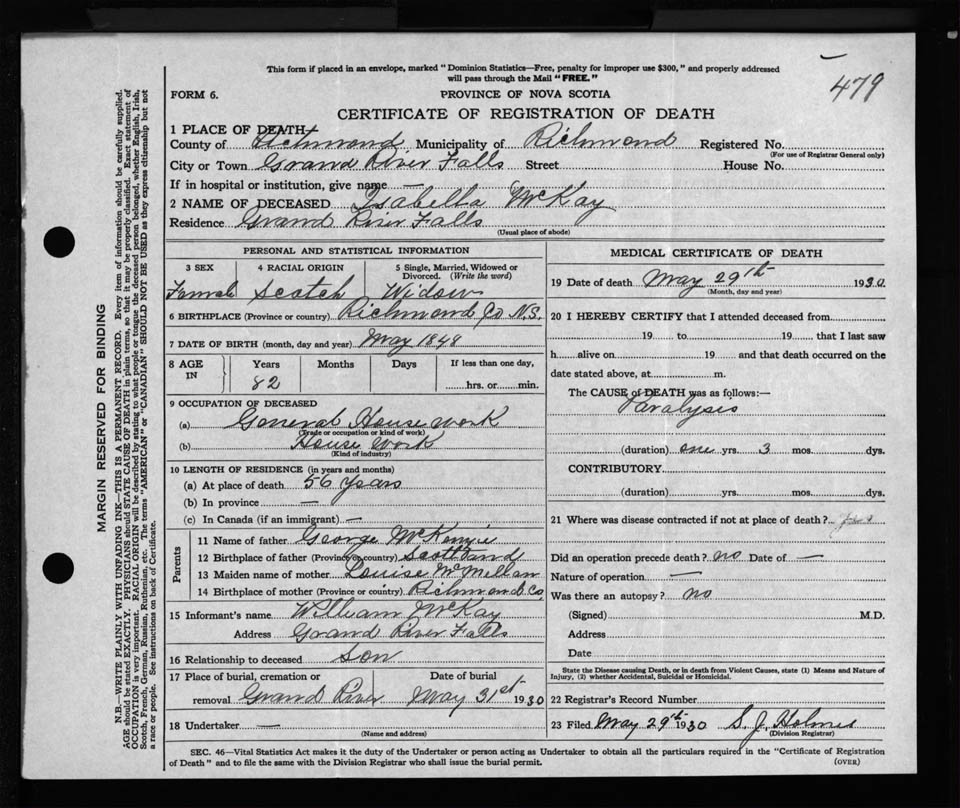 This form if placed in an envelope, marked "Dominion Statistics—Free, penalty for improper use $300," and properly addressed
will pass through the Mail "FREE."
479
FORM 6.
PROVINCE OF NOVA SCOTIA
CERTIFICATE OF REGISTRATION OF DEATH
1 PLACE OF DEATH—
County of Richmond Municipality of Richmond Registered No.
(For use of Registrar General only)
City or Town Grand River Falls Street House No.
If in hospital or institution, give name —
2 NAME OF DECEASED Isabella McKay
Residence Grand River Falls
(Usual place of abode)
PERSONAL AND STATISTICAL INFORMATION
3 SEX 4 RACIAL ORIGIN 5 Single, Married, Widowed or
Divorced. (Write the word)
Female Scotch Widow
6 BIRTHPLACE (Province or country) Richmond Co N.S.
7 DATE OF BIRTH (month, day and year) May 1848
8 AGE Years Months Days If less than one day,
IN 82 hrs. or min.
9 OCCUPATION OF DECEASED
(a) General House work
(Trade or occupation or kind of work)
(b) House Work
(Kind of industry)
10 LENGTH OF RESIDENCE (in years and months)
(a) At place of death 56 years
(b) In province —
(c) In Canada (if an immigrant) —
Parents
11 Name of father George McKenzie
12 Birthplace of father (Province or country) Scotland
13 Maiden name of mother Louise McMellan
14 Birthplace of mother (Province or country) Richmond Co.
15 Informant's name William McKay
Address Grand River Falls
16 Relationship to deceased son
17 Place of burial, cremation or Date of burial
removal Grand River May 31st 1930
18 Undertaker —
(Name and address)
MEDICAL CERTIFICATE OF DEATH
19 Date of death May 29th 1930
(Month, day and year)
20 I HEREBY CERTIFY that I attended deceased from
19 to 19 , that I last saw
h alive on 19 and that death occurred on the
date stated above, at m.
The CAUSE of DEATH was as follows:—
Paralysis
(duration) one yrs. 3 mos. dys.
CONTRIBUTORY
(duration) yrs. mos. dys.
21 Where was disease contracted if not at place of death?
Did an operation precede death? no Date of —
Nature of operation —
Was there an autopsy? no
(Signed) M.D.
Address
Date
State the Disease causing Death, or in death from Violent Causes, state (1) Means and Nature of
Injury, (2) whether Accidental, Suicidal or Homicidal.
22 Registrar's Record Number
23 Filed May 29th 1930 S. J. Holmes
(Division Registrar)
SEC. 46—Vital Statistics Act makes it the duty of the Undertaker or person acting as Undertaker to obtain all the particulars required in the "Certificate of Registration
of Death" and to file the same with the Division Registrar who shall issue the burial permit.
(OVER)
MARGIN RESERVED FOR BINDING
N.B.—WRITE PLAINLY WITH UNFADING INK—THIS IS A PERMANENT RECORD. Every item of information should be carefully supplied.
AGE should be stated EXACTLY. PHYSICIANS should STATE CAUSE OF DEATH in plain terms, so that it may be properly classified. Exact statement of
OCCUPATION is very important. RACIAL ORIGIN will be described by stating to what people or tongue the deceased person belonged, whether English, Irish,
Scotch, French, German, Russian, Ruthenian, etc. The terms "AMERICAN" or "CANADIAN" SHOULD NOT BE USED as they express citizenship but not
a race or people. See instructions on back of Certificate.